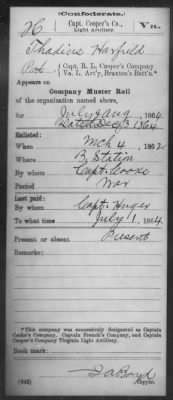 (Confederate.)
H
Capt. Cooper's Co.,
Light Artillery
Va.
Thadius Harfield
Pvt
Capt. R. L. Cooper's Company
Va. L. Art'y, Braxton's Batt'n.*
Appears on
Company Muster Roll
of the organization named above,
for July & Aug, 1864
Dated Dec 3 1864
Enlisted:
When Mch 4, 1862
Where B. Station
By whom Capt. Cooke
Period War
Last paid:
By whom Capt. Huger
To what time July 1, 1864
Present or absent Present
Remarks:
*This company was successively designated as Captain
Cooke's Company, Captain French's Company, and Captain
Cooper's Company Virginia Light Artillery.
Book mark:
(642)
Copyist.